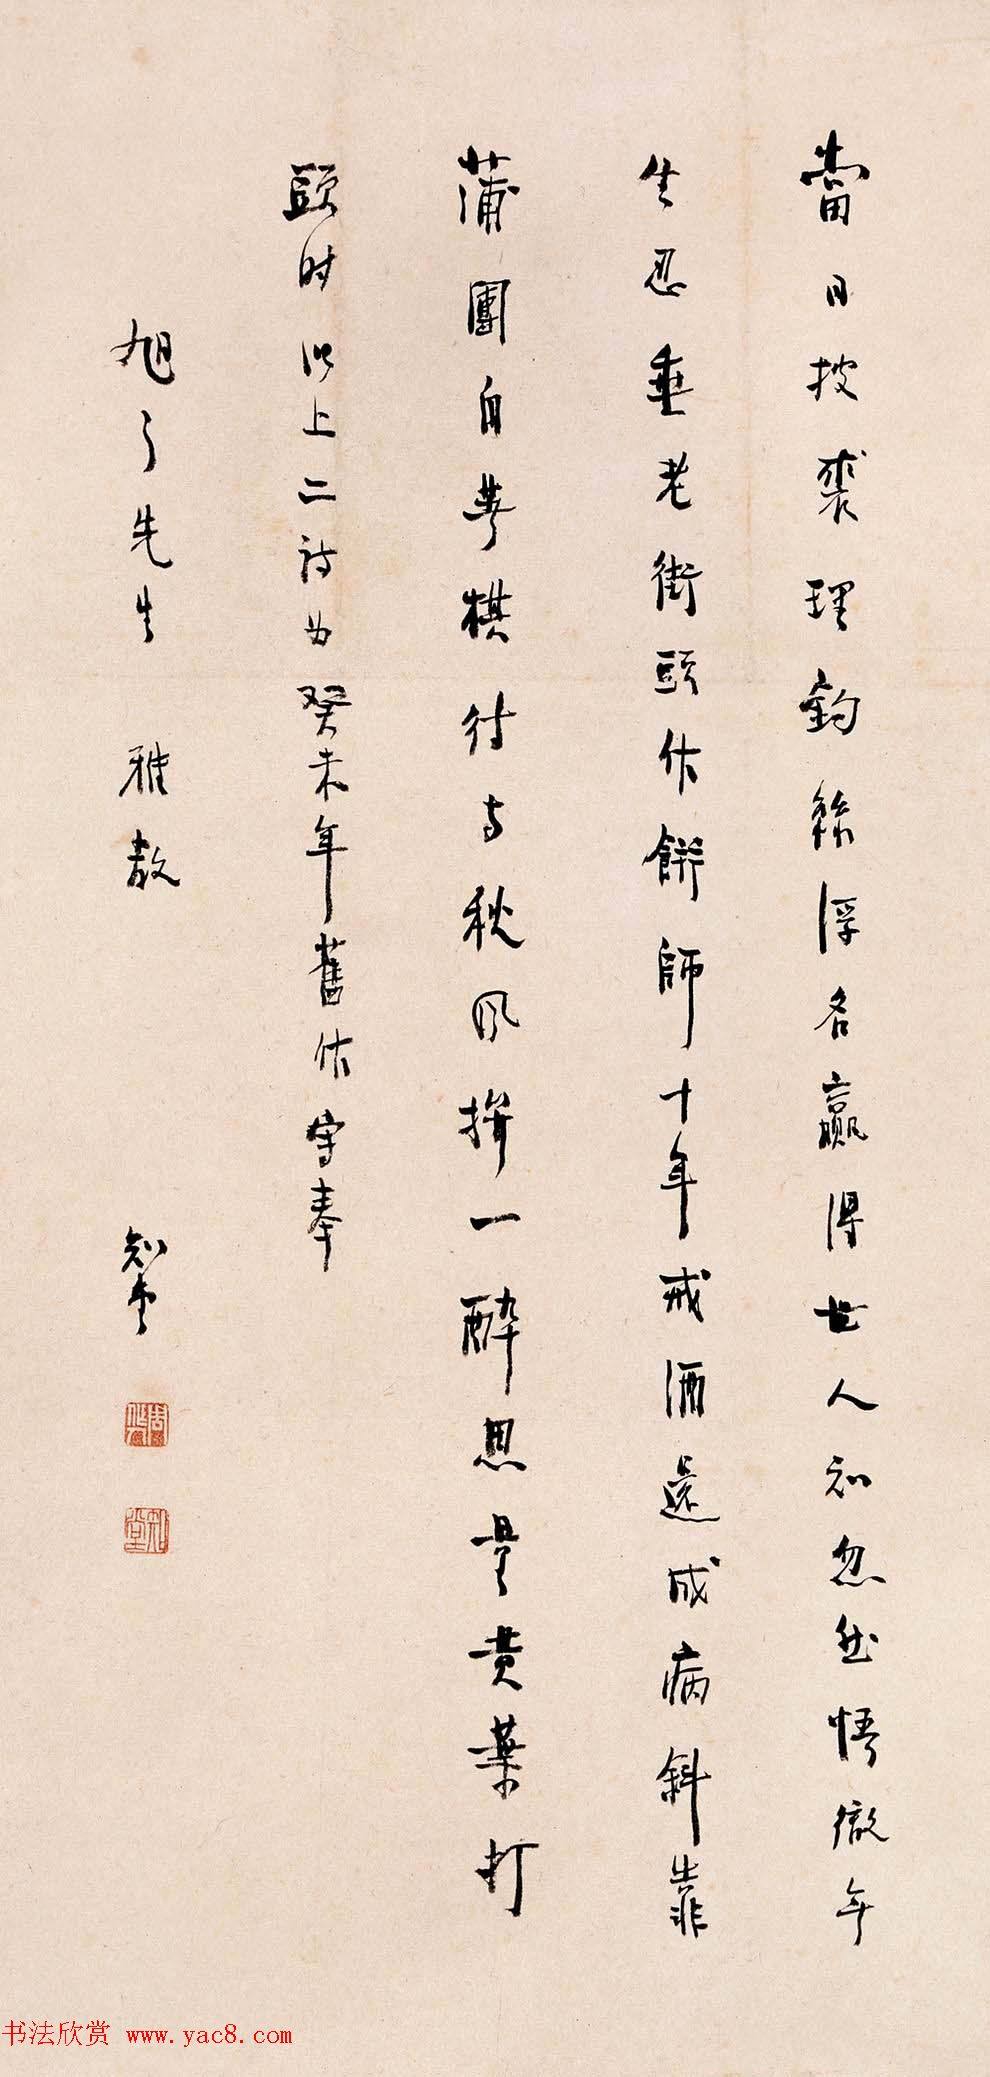 當日披裘理釣絲浮名贏得世人知忽然悟徹無
生忍垂老街頭作餅師十年戒酒還成病斜靠
蒲團自弄棋待與秋風拚一醉思量黃葉打
頭時 此上二詩為癸未年舊作寫奉
旭了先生 雅教
知堂
知堂
书法欣赏 www.yac8.com